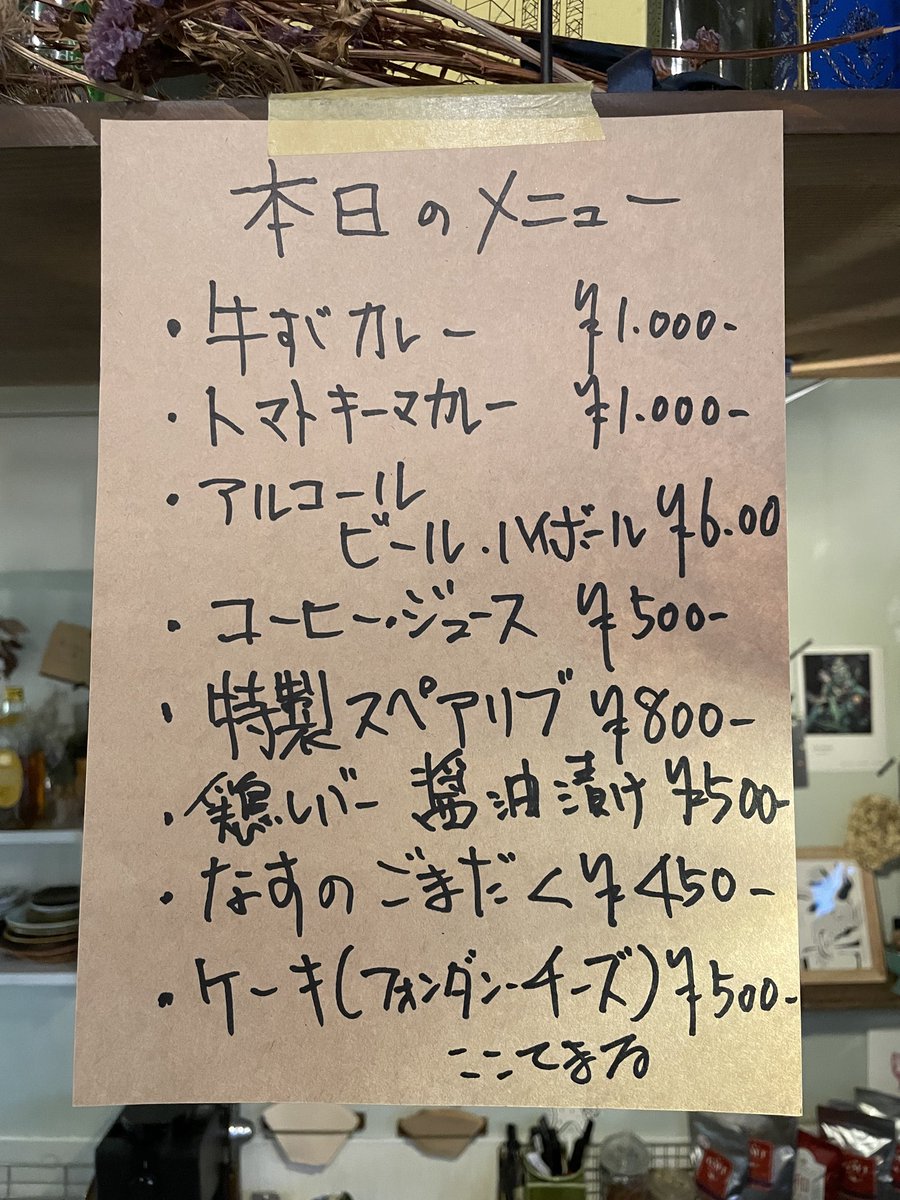 本日のメニュー
・牛すじカレー ¥1.000-
・トマトキーマカレー ¥1.000-
・アルコール
ビール・ハイボール ¥6.00
・コーヒー・ジュース ¥500-
・特製スペアリブ ¥800-
・鶏レバー 醤油漬け ¥500-
・なすのごまだく ¥450-
・ケーキ(フォンダン・チーズ) ¥500-